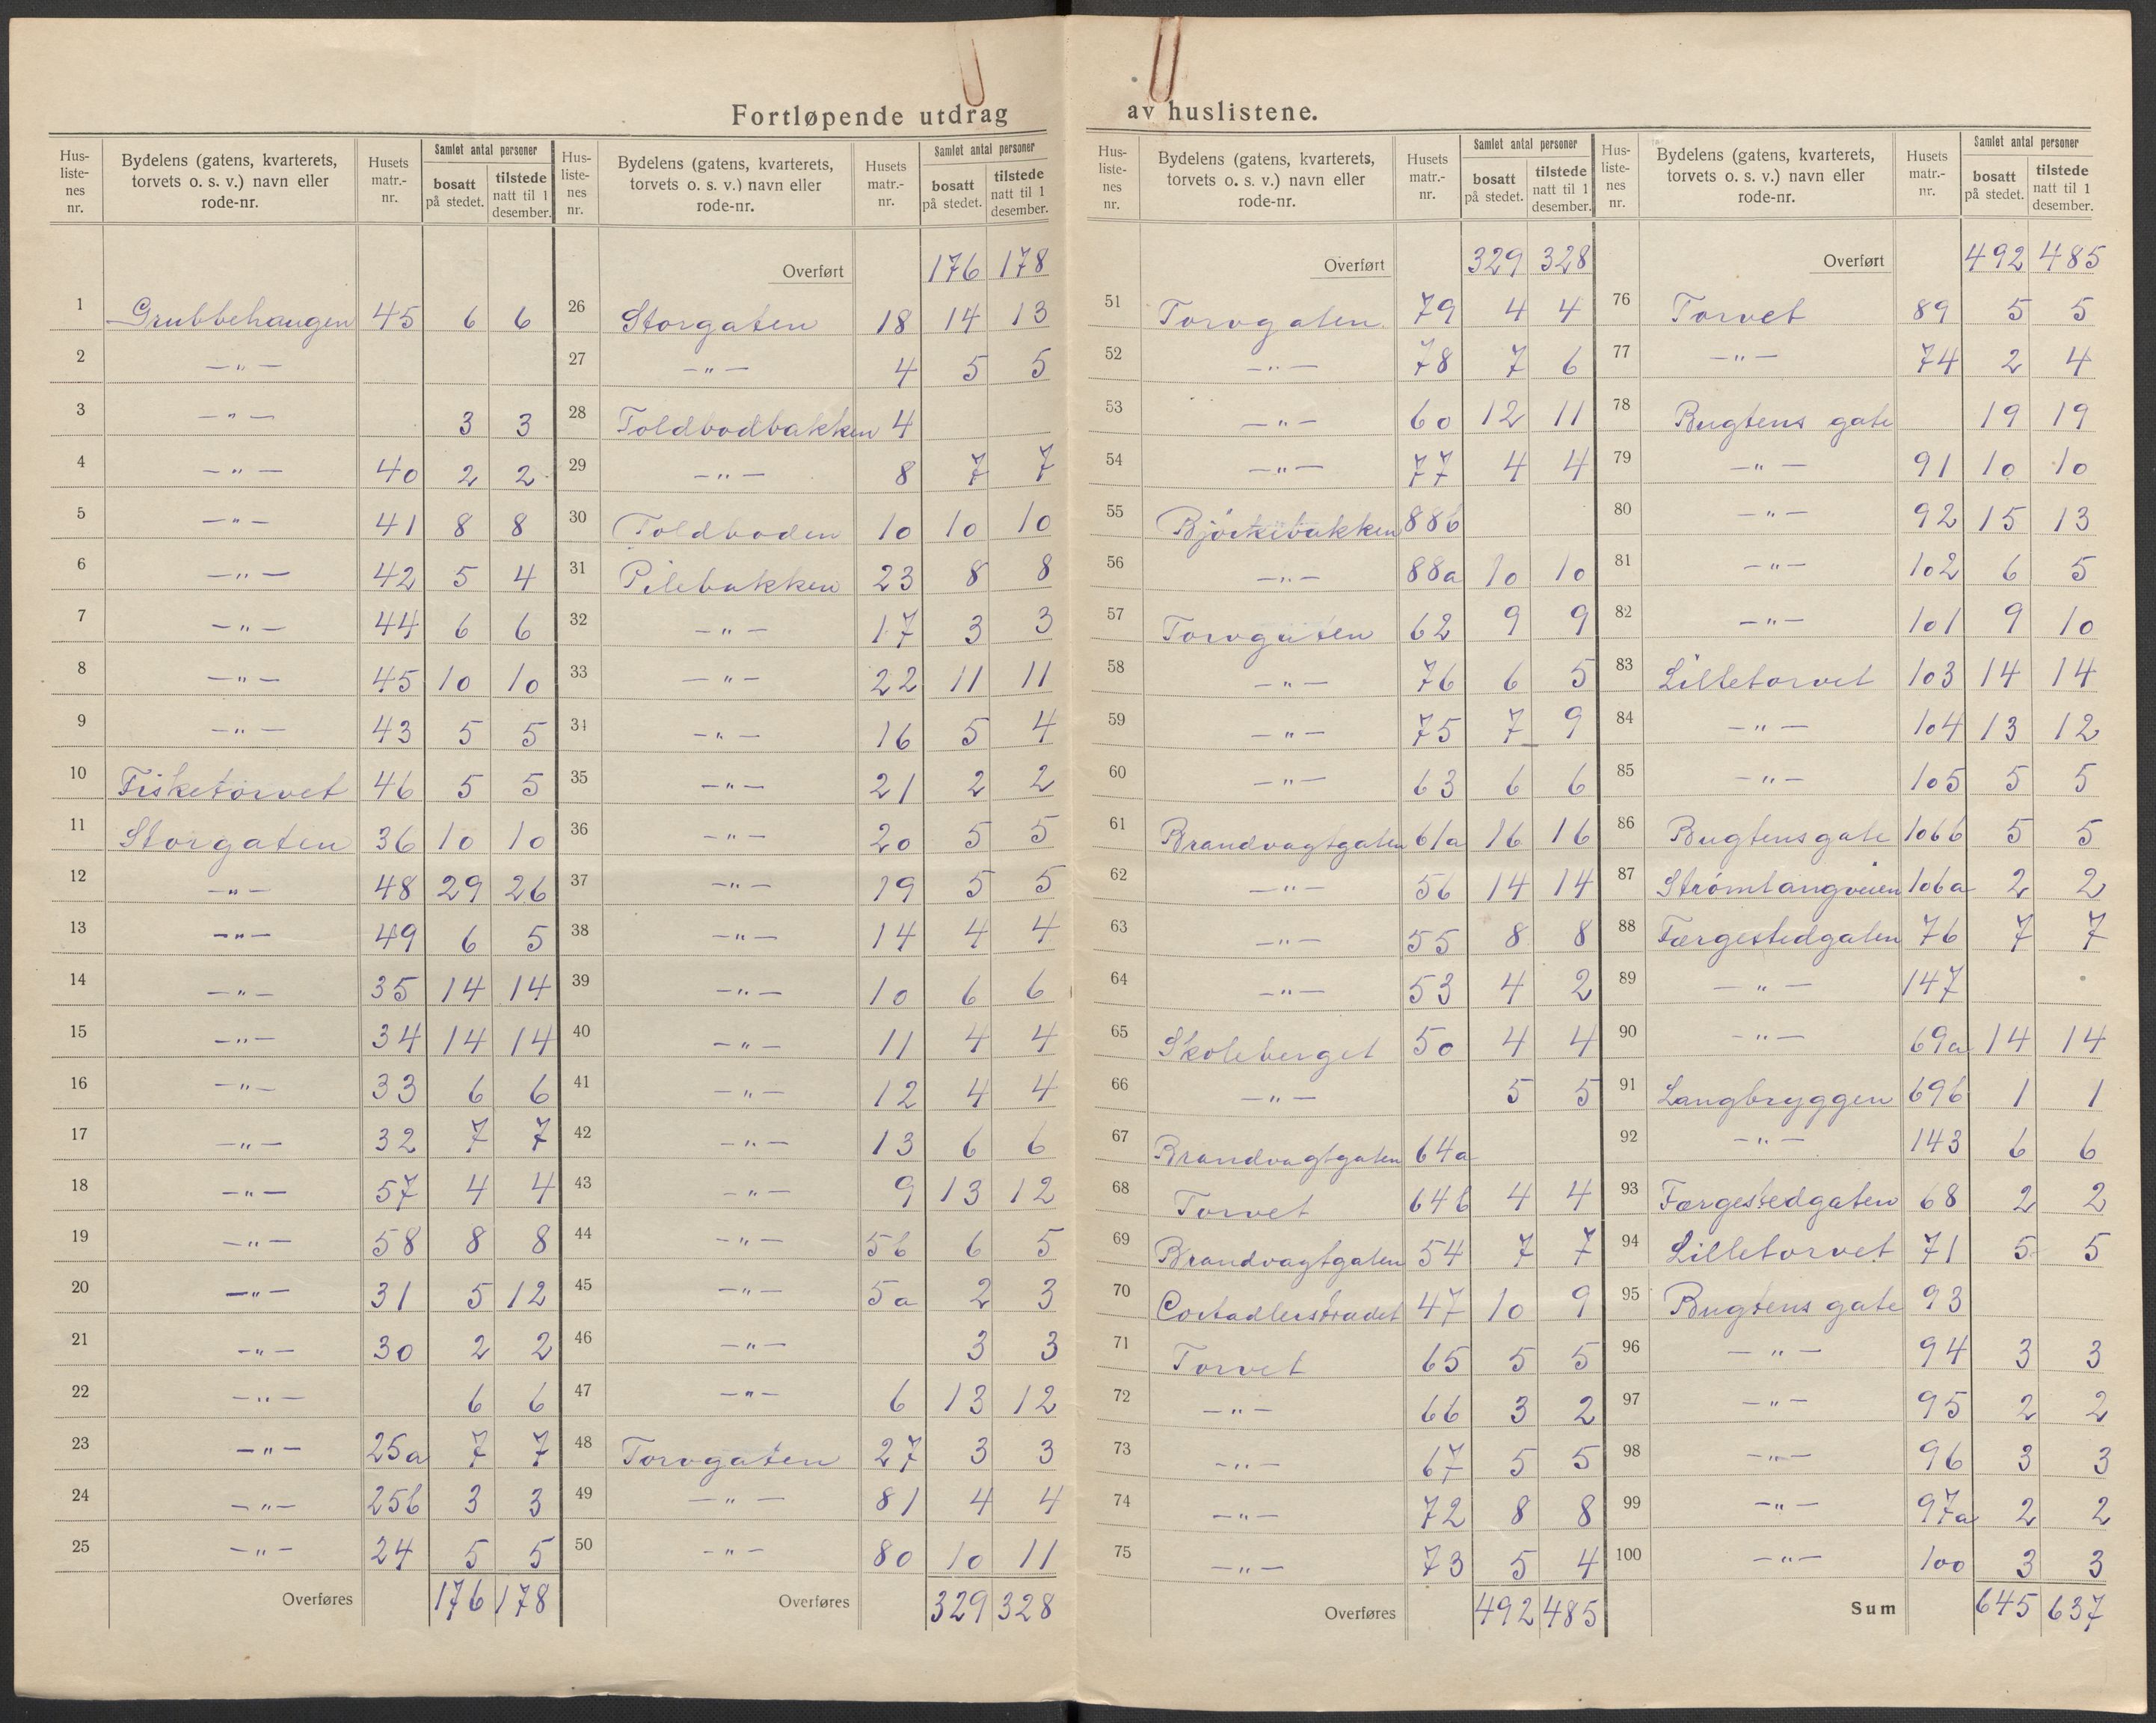 Fortløpende utdrag av huslistene.
Hus-listenes nr. | Bydelens (gatens, kvarterets, torvets o. s. v.) navn eller rode-nr. | Husets matr.-nr. | Samlet antal personer bosatt på stedet. | tilstede natt til 1 desember.
1 Grubbehaugen 45 6 6
2 —„—
3 —„— 3 3
4 —„— 40 2 2
5 —„— 41 8 8
6 —„— 42 5 4
7 —„— 44 6 6
8 —„— 45 10 10
9 —„— 43 5 5
10 Fisketorvet 46 5 5
11 Storgaten 36 10 10
12 —„— 48 29 26
13 —„— 49 6 5
14 —„— 35 14 14
15 —„— 34 14 14
16 —„— 33 6 6
17 —„— 32 7 7
18 —„— 57 4 4
19 —„— 58 8 8
20 —„— 31 5 12
21 —„— 30 2 2
22 —„— 6 6
23 —„— 25a 7 7
24 —„— 25b 3 3
25 —„— 24 5 5
Overføres 176 178
Hus-listenes nr. | Bydelens (gatens, kvarterets, torvets o. s. v.) navn eller rode-nr. | Husets matr.-nr. | Samlet antal personer bosatt på stedet. | tilstede natt til 1 desember.
Overført 176 178
26 Storgaten 18 14 13
27 —„— 4 5 5
28 Toldbodbakken 4
29 —„— 8 7 7
30 Toldboden 10 10 10
31 Pilebakken 23 8 8
32 —„— 17 3 3
33 —„— 22 11 11
34 —„— 16 5 4
35 —„— 21 2 2
36 —„— 20 5 5
37 —„— 19 5 5
38 —„— 14 4 4
39 —„— 10 6 6
40 —„— 11 4 4
41 —„— 12 4 4
42 —„— 13 6 6
43 —„— 9 13 12
44 —„— 5b 6 5
45 —„— 5a 2 3
46 —„— 3 3
47 —„— 6 13 12
48 Torvgaten 27 3 3
49 —„— 81 4 4
50 —„— 80 10 11
Overføres 329 328
Hus-listenes nr. | Bydelens (gatens, kvarterets, torvets o. s. v.) navn eller rode-nr. | Husets matr.-nr. | Samlet antal personer bosatt på stedet. | tilstede natt til 1 desember.
Overført 329 328
51 Torvgaten 79 4 4
52 —„— 78 7 6
53 —„— 60 12 11
54 —„— 77 4 4
55 Bjørkebakken 88b
56 —„— 88a 10 10
57 Torvgaten 62 9 9
58 —„— 76 6 5
59 —„— 75 7 9
60 —„— 63 6 6
61 Brandvagtgaten 61a 16 16
62 —„— 56 14 14
63 —„— 55 8 8
64 —„— 53 4 2
65 Skoleberget 50 4 4
66 —„— 5 5
67 Brandvagtgaten 64a
68 Torvet 64b 4 4
69 Brandvagtgaten 54 7 7
70 Cortadlerstrædet 47 10 9
71 Torvet 65 5 5
72 —„— 66 3 2
73 —„— 67 5 5
74 —„— 72 8 8
75 —„— 73 5 4
Overføres 492 485
Hus-listenes nr. | Bydelens (gatens, kvarterets, torvets o. s. v.) navn eller rode-nr. | Husets matr.-nr. | Samlet antal personer bosatt på stedet. | tilstede natt til 1 desember.
Overført 492 485
76 Torvet 89 5 5
77 —„— 74 2 4
78 Bugtens gate 19 19
79 —„— 91 10 10
80 —„— 92 15 13
81 —„— 102 6 5
82 —„— 101 9 10
83 Lilletorvet 103 14 14
84 —„— 104 13 12
85 —„— 105 5 5
86 Bugtensgate 106b 5 5
87 Strømtangveien 106a 2 2
88 Færgestedgaten 76 7 7
89 —„— 147
90 —„— 69a 14 14
91 Langbryggen 69b 1 1
92 —„— 143 6 6
93 Færgestedgaten 68 2 2
94 Lilletorvet 71 5 5
95 Bugtens gate 93
96 —„— 94 3 3
97 —„— 95 2 2
98 —„— 96 3 3
99 —„— 97a 2 2
100 —„— 100 3 3
Sum 645 637